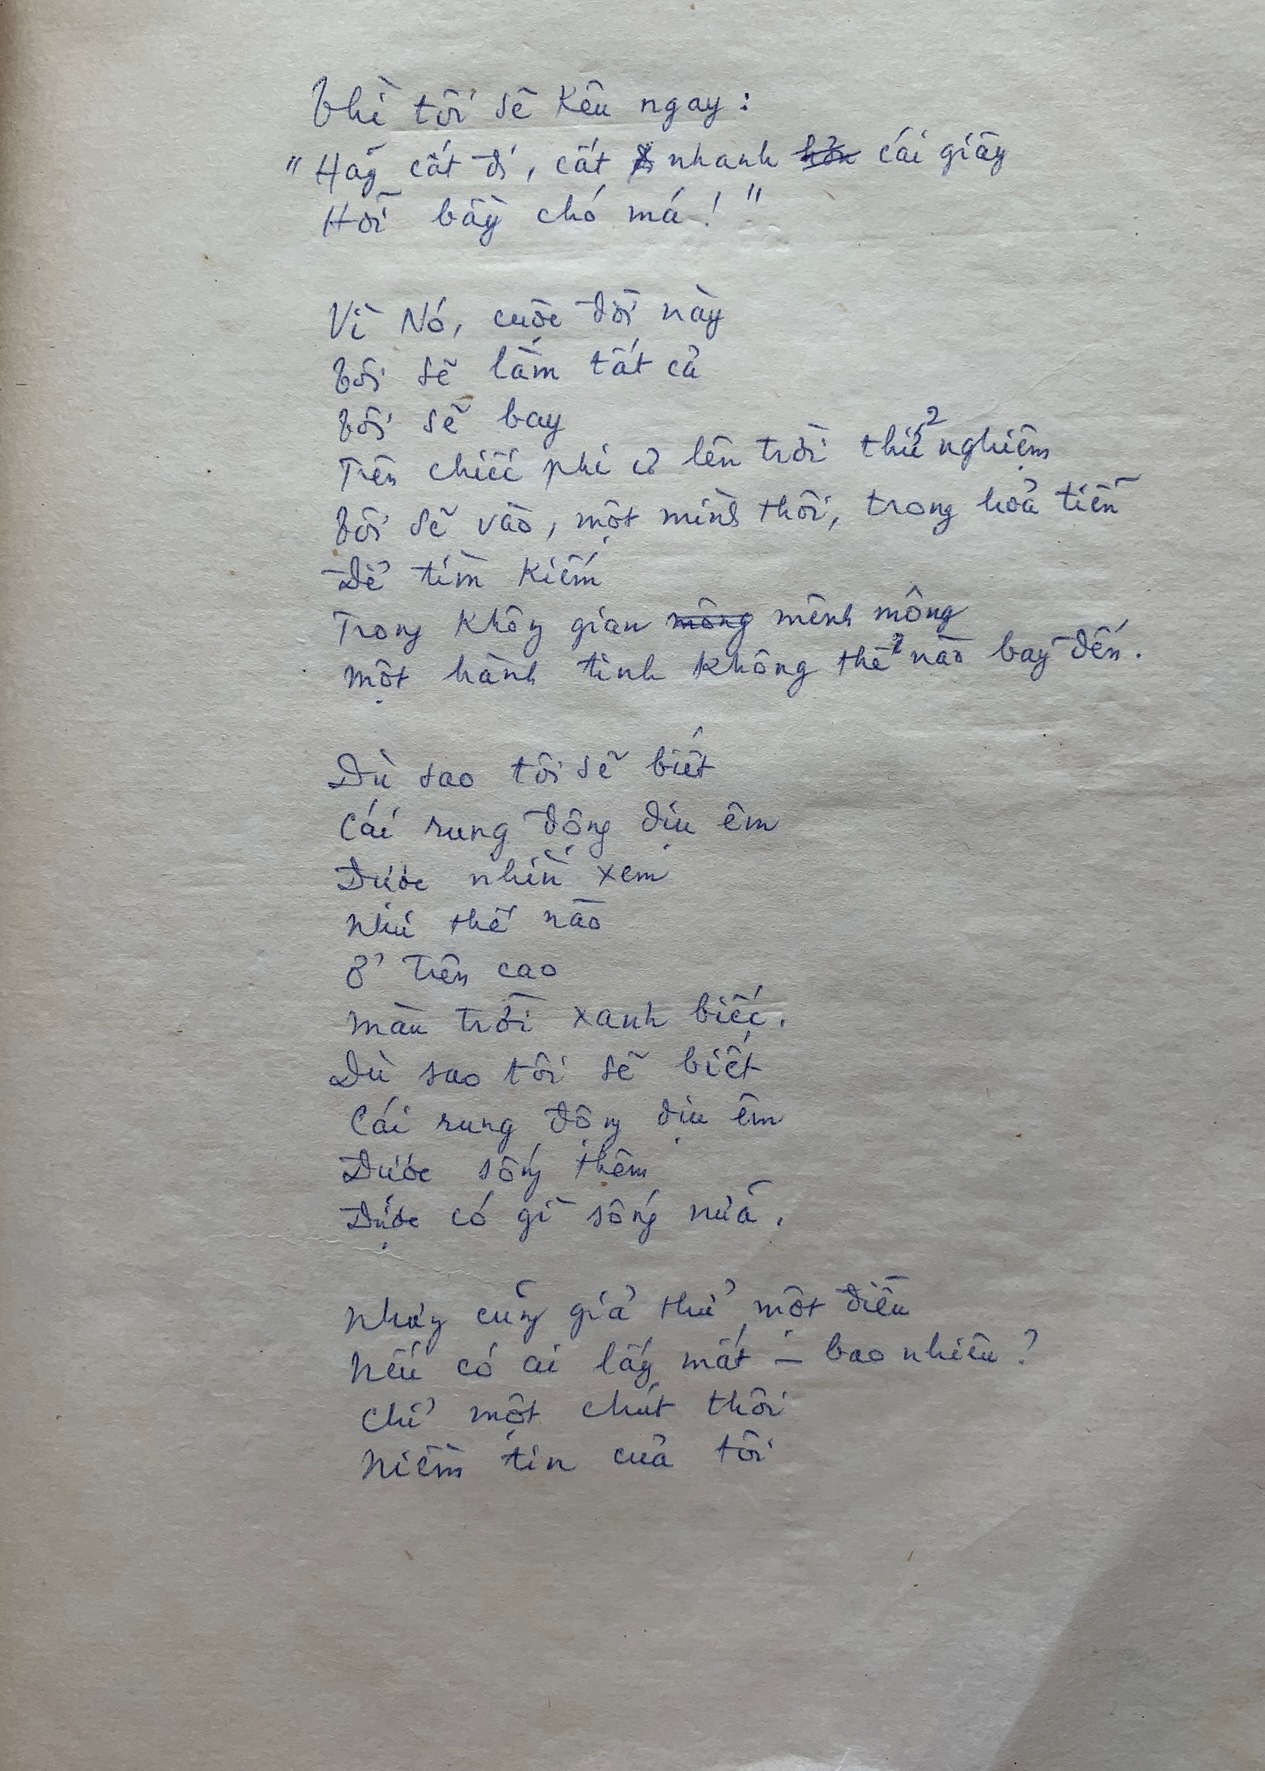 Thì tôi sẽ kêu ngay:
"Hãy cắt đi, cắt nhanh hơn cái giây
Hỡi bầy chó má!"
Vì Nó, cuộc đời này
Tôi sẽ làm tất cả
Tôi sẽ bay
Trên chiếc phi cơ lên trời thử nghiệm
Tôi sẽ vào, một mình thôi, trong hoả tiễn
Để tìm kiếm
Trong không gian mông mênh mông
Một hành tinh không thể nào bay đến.
Dù sao tôi sẽ biết
Cái rung động dịu êm
Được nhìn xem
Như thế nào
Ở trên cao
Màu trời xanh biếc.
Dù sao tôi sẽ biết
Cái rung động dịu êm
Được sống thêm
Được có gì sống nữa.
Nhưng cũng giả thử một điều
Nếu có ai lấy mất – bao nhiêu?
Chỉ một chút thôi
Niềm tin của tôi